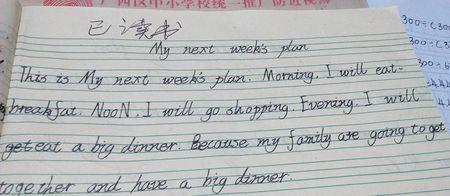 西区中小学校统一推广防近视
已读书
My next week's plan
This is My next week's plan. Morning. I will eat
breakfat. NooN. I will go shopping. Evening. I will
get eat a big dinner. Because my family are going to get
together and have a big dinner.